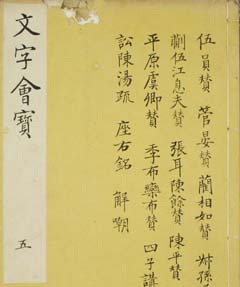 伍員贊　管晏贊　藺相如贊　叔孫
蒯伍江息夫贊　張耳陳餘贊　陳平贊
平原虞卿贊　季布欒布贊　四子講
訟陳湯疏　座右銘　解嘲
文字會寶
五